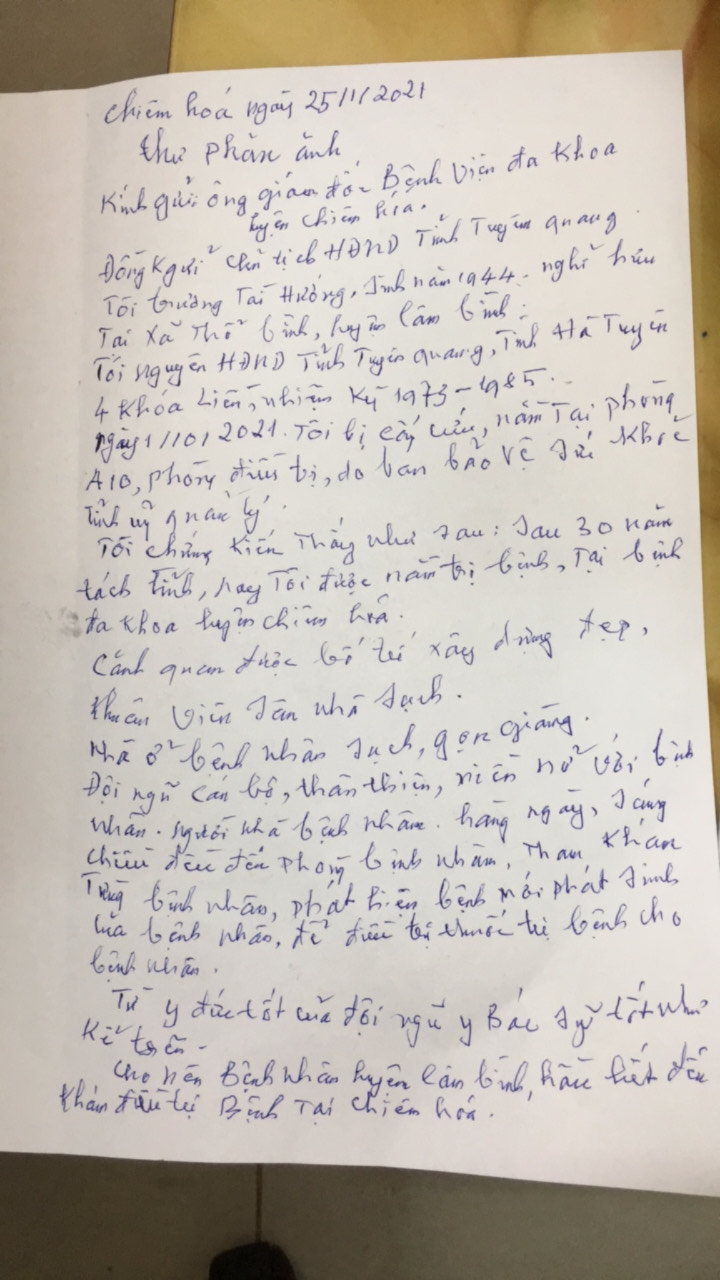 Chiêm hoá ngày 25/1/2021
thư phản ánh
Kính gửi: ông giám đốc Bệnh Viện đa Khoa
huyện chiêm hóa.
Đồng Kgửi chủ tịch HĐND Tỉnh Tuyên quang.
Tôi trương Tài Hướng, sinh năm 1944. nghỉ hưu
Tại xã Thổ bình, huyện lâm bình.
Tôi nguyên HĐND Tỉnh Tuyên quang, Tỉnh Hà Tuyên
4 Khóa Liền, nhiệm Kỳ 1973-1985.
ngày 1/10/2021. Tôi bị cấp cứu, nằm Tại phòng
A10, phòng điều trị, do ban bảo vệ sức Khoẻ
Tỉnh uỷ quản lý.
Tôi chứng Kiến Thấy như sau: sau 30 năm
tách Tỉnh, nay Tôi được nằm trị bệnh, Tại bệnh
đa Khoa huyện chiêm hoá.
Cảnh quan được bố trí xây dựng đẹp,
Khuân Viên sân nhà sạch.
Nhà ở bệnh nhân sạch, gọn giàng.
Đội ngũ cán bộ, thân thiện, niền nở với bệnh
nhân. người nhà bệnh nhâm. hàng ngày, sáng
chiều đều đến phòng bệnh nhâm, Tham Khám
Từng bệnh nhân, phát hiện bệnh mới phát sinh
của bệnh nhân, để điều trị thuốc trị bệnh cho
bệnh nhân.
Từ y đức tốt của đội ngũ y Bác sỹ tốt như
Kể trên.
Cho nên Bệnh nhân huyện lâm bình, hầu hết đến
Khám điều trị Bệnh Tại chiêm hóa.